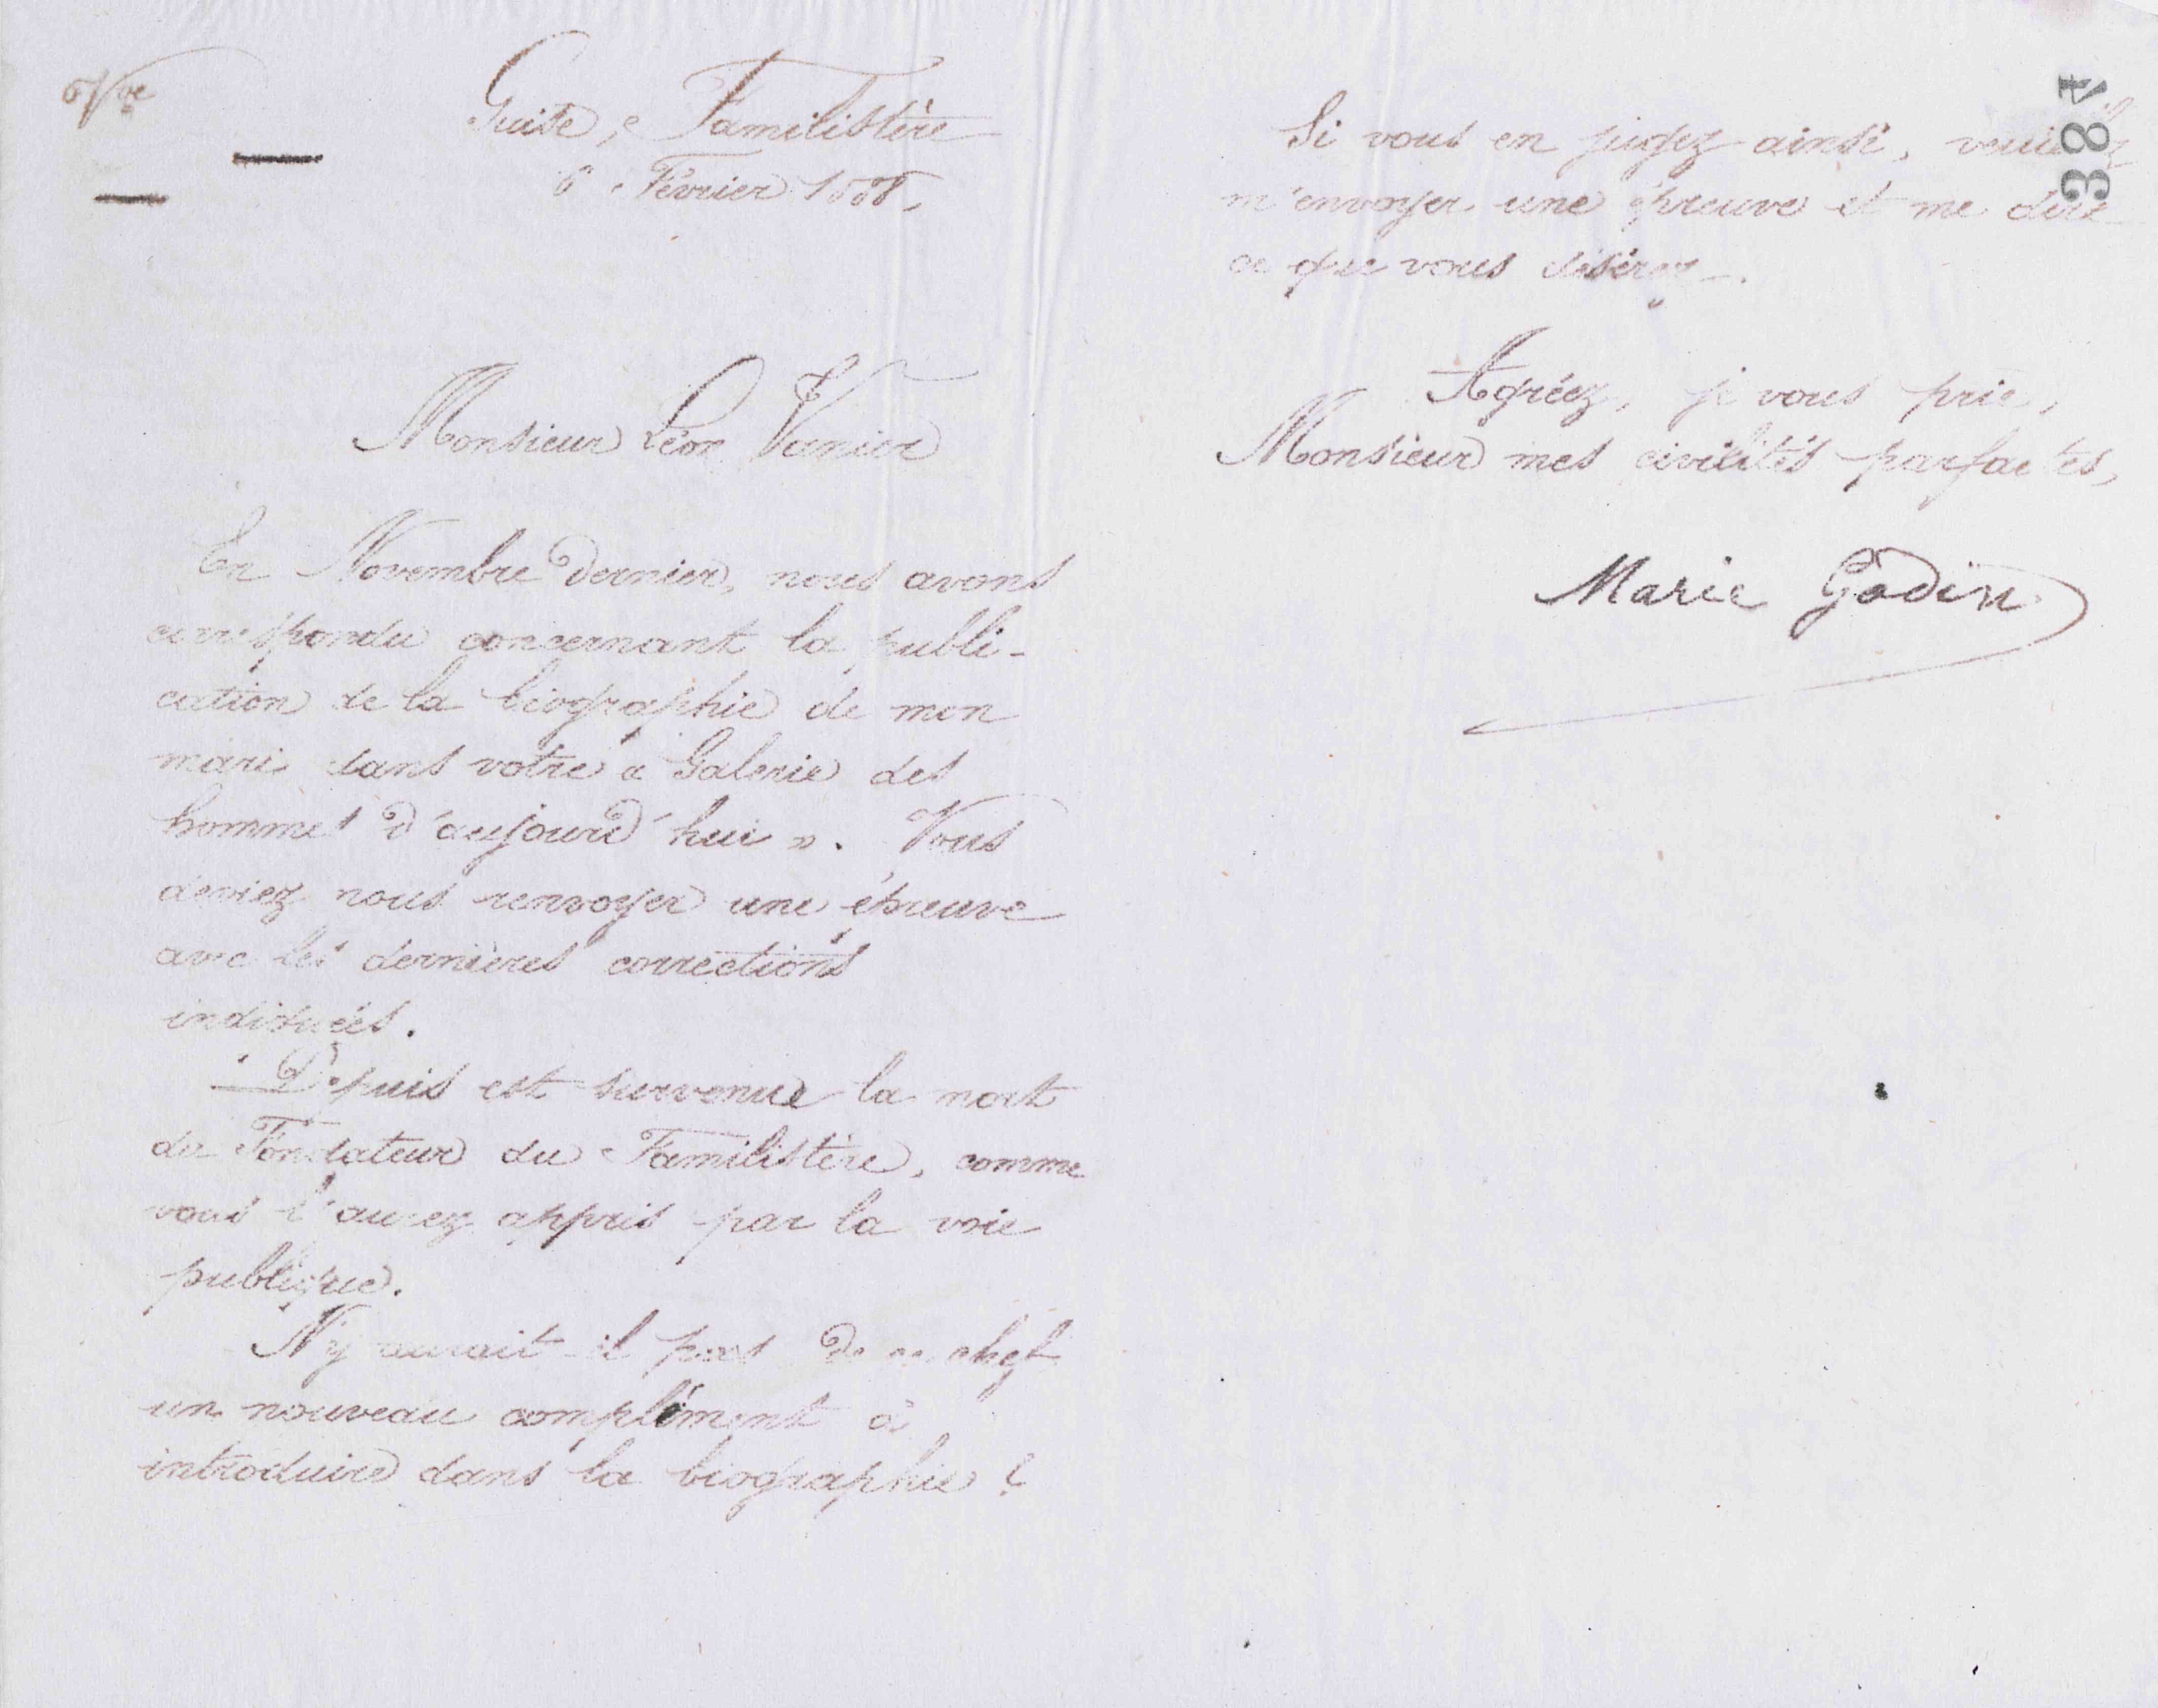 Vve
Guise, Familistère
6 Février 1888.
Monsieur Léon Vanier
En Novembre dernier, nous avons
correspondu concernant la publi-
cation de la biographie de mon
mari dans votre « Galerie des
hommes d'aujourd'hui ». Vous
deviez nous renvoyer une épreuve
avec les dernières corrections
indiquées.
Depuis est survenue la mort
du Fondateur du Familistère, comme
vous l'aurez appris par la voie
publique.
N'y aurait-il pas de ce chef
un nouveau complément à
introduire dans la biographie ?
384
Si vous en jugez ainsi, veuillez
m'envoyer une épreuve et me dire
ce que vous désirez.
Agréez, je vous prie,
Monsieur mes civilités parfaites,
Marie Godin